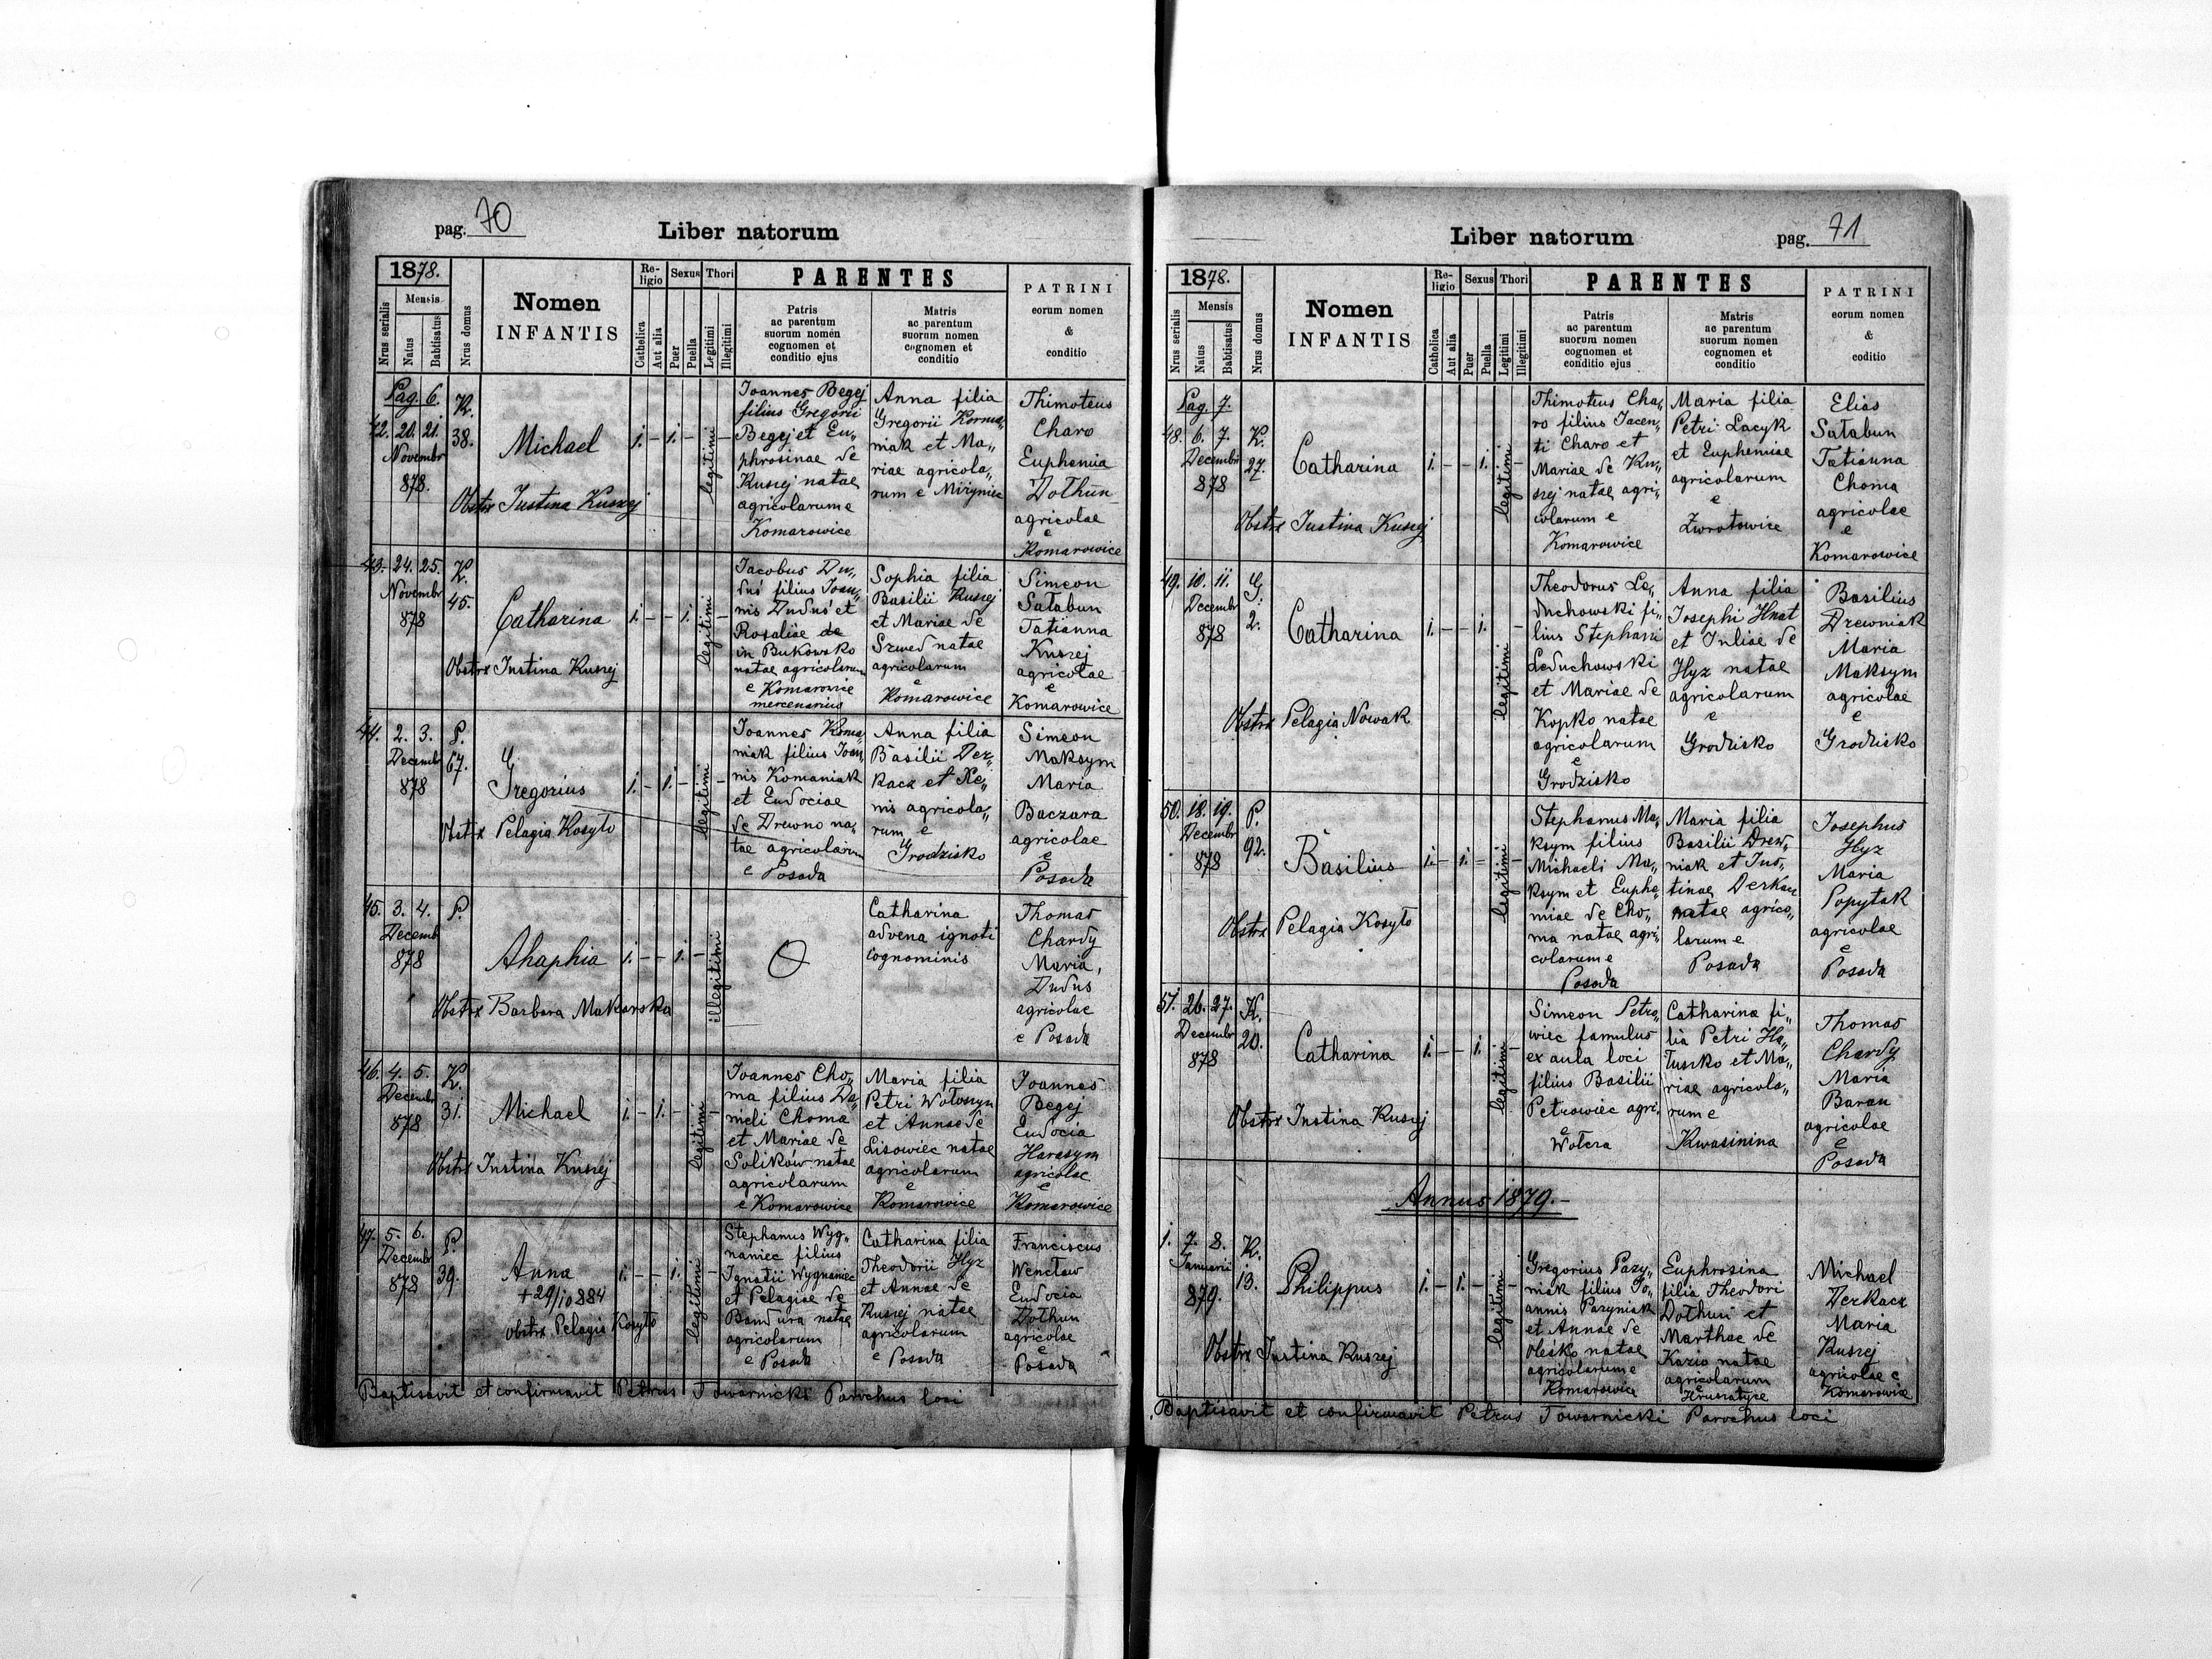 pag. 70
Liber natorum
1878.
Nrus serialis
Mensis
Natus
Babtisatus
Nrus domus
Nomen
INFANTIS
Re-
ligio
Catholica
Aut alia
Sexus
Puer
Puella
Thori
Legitimi
Illegitimi
PARENTES
Patris
ac parentum
suorum nomen
cognomen et
conditio ejus
Matris
ac parentum
suorum nomen
cognomen et
conditio
PATRINI
eorum nomen
&
conditio
Pag. 6.
42. 20. 21.
Novembr
878.
K.
38.
Michael
Obstrx Iustina Kuszej
1. – 1. –
legitimi
Ioannes Begej
filius Gregorii
Begej et Eu„
phrosinae de
Kuszej natae
agricolarum e
Komarowice
Anna filia
Gregorii Korma„
niak et Ma„
riae agricola„
rum e
Thimoteus
Charo
Euphemia
Dothun
agricolae
e
Komarowice
43. 24. 25.
Novembr
878
K.
45.
Catharina
Obstrx Iustina Kuszej
1. – – 1. –
legitimi
Iacobus Du„
duś filius Ioan„
nis Duduś et
Rosaliae de
in Bukowsko
natae agricolarum
e Komarowice
mercenarius
Sophia filia
Basilii Kuszej
et Mariae de
Szwed natae
agricolarum
e
Komarowice
Simeon
Sałabun
Tatianna
Kuszej
agricolae
e
Komarowice
44. 2. 3.
Decembr
878
P.
67.
Gregorius
Obstrx Pelagia Kosyło
1. – 1. – –
legitimi
Ioannes Koma„
niak filius Ioan„
nis Komaniak
et Eudociae
de Drewno na„
tae agricolarum
e Posada
Anna filia
Basilii Der„
kacz et Xe„
nis agricola„
rum e
Grodzisko
Simeon
Maksym
Maria
Baczara
agricolae
e
Posada
45. 3. 4.
Decembr
878
P.
Ahaphia
Obstrx Barbara Makarska
1. – – 1. –
illegitimi
Catharina
advena ignoti
cognominis
Thomas
Chardy
Maria,
Dudus
agricolae
e Posada
46. 4. 5.
Decembr
878
K.
31.
Michael
Obstrx Iustina Kuszej
1. – 1. – –
legitimi
Ioannes Cho„
ma filius Da„
nieli Choma
et Mariae de
Solików natae
agricolarum
e Komarowice
Maria filia
Petri Wołoszyn
et Annae de
Lisowiec natae
agricolarum
e
Komarowice
Ioannes
Begej
Eudocia
Harasym
agricolae
e
Komarowice
47. 5. 6.
Decembr
878
P.
39.
Anna
+ 29/10 884
Obstrx Pelagia Kosyło
1. – – 1. –
legitimi
Stephanus Wyg„
naniec filius
Ignatii Wygnaniec
et Pelagiae de
Bandura natae
agricolarum
e Posada
Catharina filia
Theodorii Hyz
et Annae de
Kuszej natae
agricolarum
e Posada
Franciscus
Wencław
Eudocia
Dothun
agricolae
e
Posada
Baptisavit et confirmavit Petrus Towarnicki Parochus loci
Liber natorum
pag. 71
1878.
Nrus serialis
Mensis
Natus
Babtisatus
Nrus domus
Nomen
INFANTIS
Re-
ligio
Catholica
Aut alia
Sexus
Puer
Puella
Thori
Legitimi
Illegitimi
PARENTES
Patris
ac parentum
suorum nomen
cognomen et
conditio ejus
Matris
ac parentum
suorum nomen
cognomen et
conditio
PATRINI
eorum nomen
&
coditio
Pag. 7.
48. 6. 7.
Decembr
878
K.
27.
Catharina
Obstrx Iustina Kuszej
1. – – 1. –
legitimi
Thimoteus Cha„
ro filius Iacen„
ti Charo et
Mariae de Ku„
szej natae agri„
colarum e
Komarowice
Maria filia
Petri Lacyk
et Euphemiae
agricolarum
e
Zwrotowice
Elias
Sałabun
Tatianna
Choma
agricolae
e
Komarowice
49. 10. 11.
Decembr
878
G.
2.
Catharina
Obstrx Pelagia Nowak
1. – – 1. –
legitimi
Theodorus Le„
duchowski fi„
lius Stephani
Leduchowski
et Mariae de
Kopko natae
agricolarum
e
Grodzisko
Anna filia
Iosephi Hnat
et Iuliae de
Hyz natae
agricolarum
e
Grodzisko
Basilius
Drewniak
Maria
Maksym
agricolae
e
Grodzisko
50. 18. 19.
Decembr
878
P.
92.
Basilius
Obstrx Pelagia Kosyło
1. – 1. – –
legitimi
Stephanus Ma„
ksym filius
Michaeli Ma„
ksym et Euphe„
miae de Cho„
ma natae agri„
colarum e
Posada
Maria filia
Basilii Drew„
niak et Ius„
tinae Derkacz
natae agrico„
larum e
Posada
Josephus
Hyz
Maria
Popytak
agricolae
e
Posada
51. 26. 27.
Decembr
878
K.
20.
Catharina
Obstrx Iustina Kuszej
1. – – 1. –
legitimi
Simeon Petro„
wiec famulus
ex aula loci
filius Basilii
Petrowiec agri.
e
Wołcza
Catharina fi„
lia Petri Ha„
łuszko et Ma„
riae agricola„
rum e
Kwasinina
Thomas
Chardy
Maria
Baran
agricolae
e
Posada
Annus 1879. –
1. 7. 8.
Januarii
879.
K.
13.
Philippus
Obstrx Iustina Kuszej
1. – 1. – –
legitimi
Gregorius Pazy„
niak filius Io„
annis Pazyniak
et Annae de
Oleśko natae
agricolarum e
Komarowice
Euphrosina
filia Theodori
Dothuń et
Marthae de
Kazio natae
agricolarum
e
Hruszatyce
Michael
Derkacz
Maria
Kuszej
agricolae e
Komarowice
Baptisavit et confirmavit Petrus Towarnicki Parochus loci